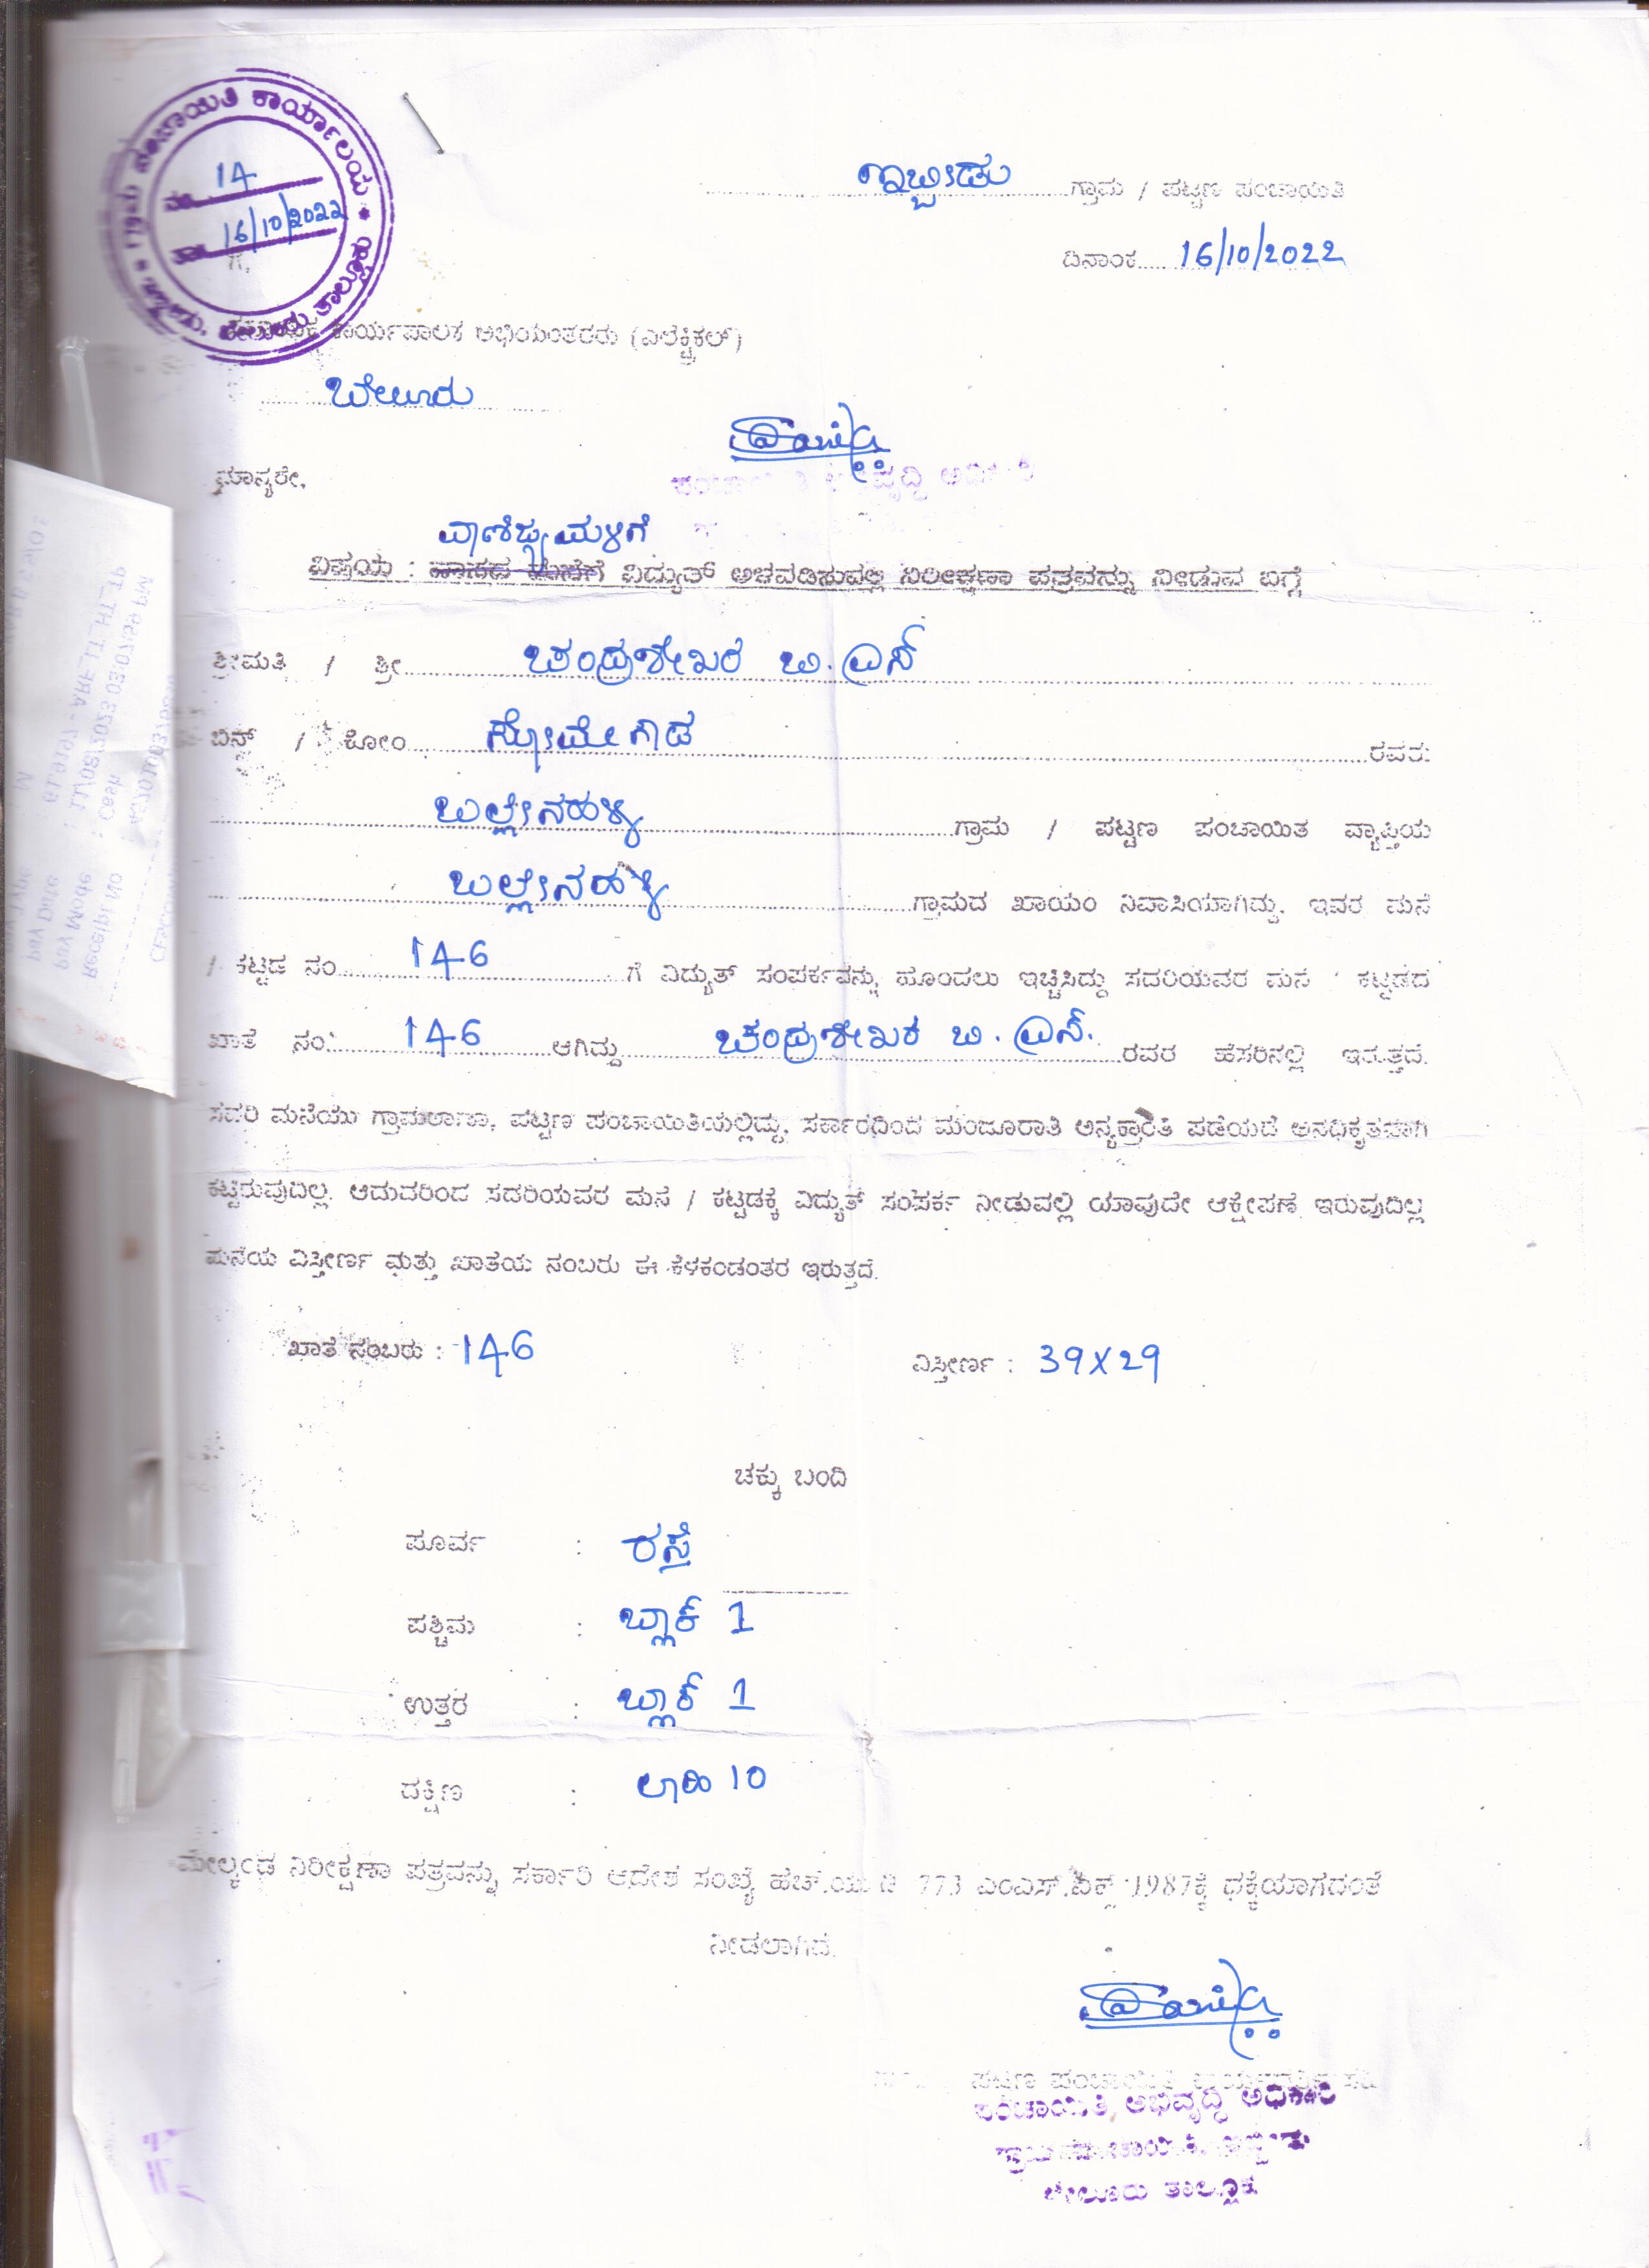 ಗ್ರಾಮ ಪಂಚಾಯಿತಿ ಕಾರ್ಯಾಲಯ
ನಂ. 14
ತಾ. 16/10/2022
ಹಳ್ಳೇಬೀಡು ಗ್ರಾಮ / ಪಟ್ಟಣ ಪಂಚಾಯಿತಿ
ದಿನಾಂಕ..... 16/10/2022
ಗೆ,
ಕಾರ್ಯಪಾಲಕ ಅಭಿಯಂತರರು (ಎಲೆಕ್ಟ್ರಿಕಲ್)
ಬೇಲೂರು
ಮಾನ್ಯರೇ,
ವಾಣಿಜ್ಯ ಮಳಿಗೆ
ವಿಷಯ : ವಾಸದ ಮನೆಗೆ ವಿದ್ಯುತ್ ಅಳವಡಿಸುವಲ್ಲಿ ನಿರೀಕ್ಷಣಾ ಪತ್ರವನ್ನು ನೀಡುವ ಬಗ್ಗೆ
ಶ್ರೀಮತಿ / ಶ್ರೀ ಚಂದ್ರಶೇಖರ ಬಿ.ಎನ್
ಬಿನ್ / ಕೋಂ ಸೋಮೇಗೌಡ ರವರು
ಬಲ್ಲೇನಹಳ್ಳಿ ಗ್ರಾಮ / ಪಟ್ಟಣ ಪಂಚಾಯಿತ ವ್ಯಾಪ್ತಿಯ
ಬಲ್ಲೇನಹಳ್ಳಿ ಗ್ರಾಮದ ಖಾಯಂ ನಿವಾಸಿಯಾಗಿದ್ದು, ಇವರ ಮನೆ
/ ಕಟ್ಟಡ ನಂ. 146 ಗೆ ವಿದ್ಯುತ್ ಸಂಪರ್ಕವನ್ನು ಹೊಂದಲು ಇಚ್ಛಿಸಿದ್ದು ಸದರಿಯವರ ಮನೆ / ಕಟ್ಟಡದ
ಖಾತೆ ನಂ. 146 ಆಗಿದ್ದು ಚಂದ್ರಶೇಖರ ಬಿ.ಎನ್. ರವರ ಹೆಸರಿನಲ್ಲಿ ಇರುತ್ತದೆ.
ಸದರಿ ಮನೆಯು ಗ್ರಾಮಠಾಣಾ, ಪಟ್ಟಣ ಪಂಚಾಯಿತಿಯಲ್ಲಿದ್ದು, ಸರ್ಕಾರದಿಂದ ಮಂಜೂರಾತಿ ಅನ್ಯಕ್ರಾಂತಿ ಪಡೆಯದೆ ಅನಧಿಕೃತವಾಗಿ
ಕಟ್ಟಿರುವುದಿಲ್ಲ. ಆದುದರಿಂದ ಸದರಿಯವರ ಮನೆ / ಕಟ್ಟಡಕ್ಕೆ ವಿದ್ಯುತ್ ಸಂಪರ್ಕ ನೀಡುವಲ್ಲಿ ಯಾವುದೇ ಆಕ್ಷೇಪಣೆ ಇರುವುದಿಲ್ಲ
ಮನೆಯ ವಿಸ್ತೀರ್ಣ ಮತ್ತು ಖಾತೆಯ ನಂಬರು ಈ ಕೆಳಕಂಡಂತರ ಇರುತ್ತದೆ.
ಖಾತೆ ನಂಬರು : 146 ವಿಸ್ತೀರ್ಣ : 39X29
ಚಕ್ಕು ಬಂದಿ
ಪೂರ್ವ : ರಸ್ತೆ
ಪಶ್ಚಿಮ : ಬ್ಲಾಕ್ 1
ಉತ್ತರ : ಬ್ಲಾಕ್ 1
ದಕ್ಷಿಣ : 10
ಮೇಲ್ಕಂಡ ನಿರೀಕ್ಷಣಾ ಪತ್ರವನ್ನು ಸರ್ಕಾರಿ ಆದೇಶ ಸಂಖ್ಯೆ ಹೆಚ್.ಯು.ಡಿ 773 ಎಂಎನ್.ಎಕ್ಸ್ 1987ಕ್ಕೆ ಧಕ್ಕೆಯಾಗದಂತೆ
ನೀಡಲಾಗಿದೆ.
ಪಟ್ಟಣ ಪಂಚಾಯಿತಿ
ಪಂಚಾಯಿತಿ ಅಭಿವೃದ್ಧಿ ಅಧಿಕಾರಿ
ಗ್ರಾಮ ಪಂಚಾಯಿತಿ, ಹಳ್ಳೇಬೀಡು
ಬೇಲೂರು ತಾಲ್ಲೂಕು